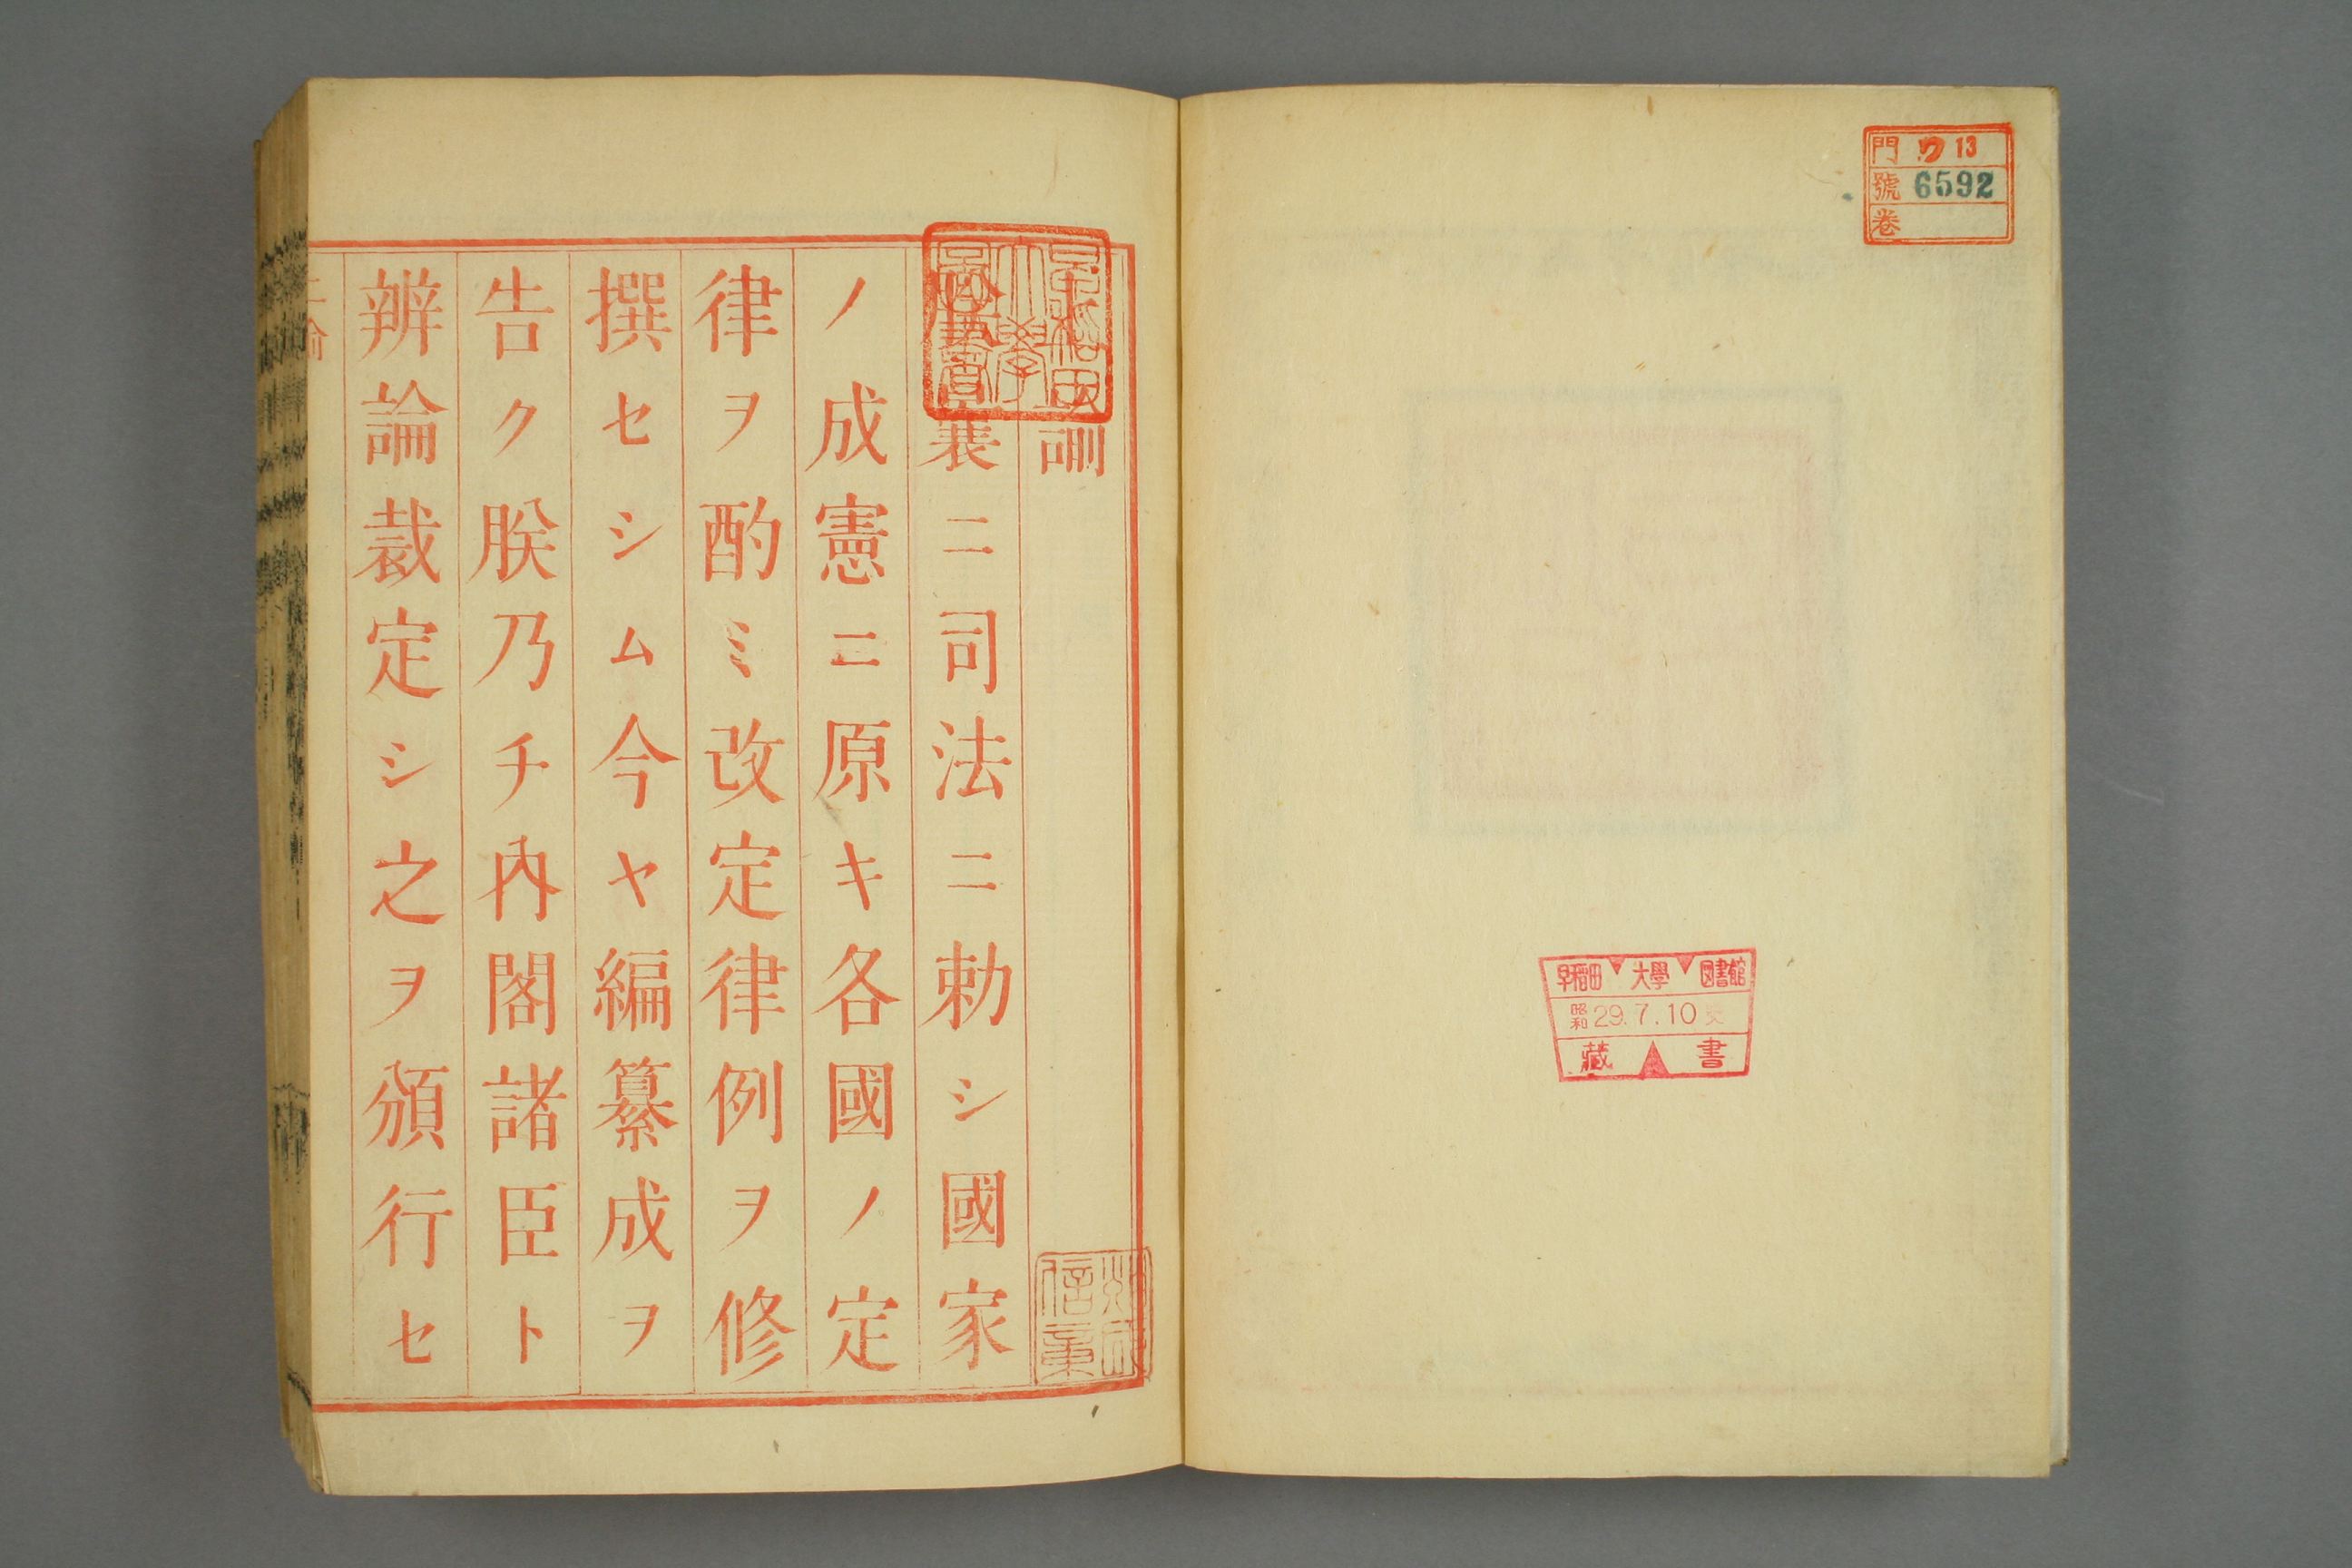 門 ワ 13
號 6592
卷
早稻田 大學 図書館
昭和 29.7.10
藏書
早稲田
大學
圖書
曩ニ司法ニ勅シ國家
ノ成憲ニ原キ各國ノ定
律ヲ酌ミ改定律例ヲ修
撰セシム今ヤ編纂成ヲ
告ク朕乃チ內閣諸臣ト
辨論裁定シ之ヲ頒行セ